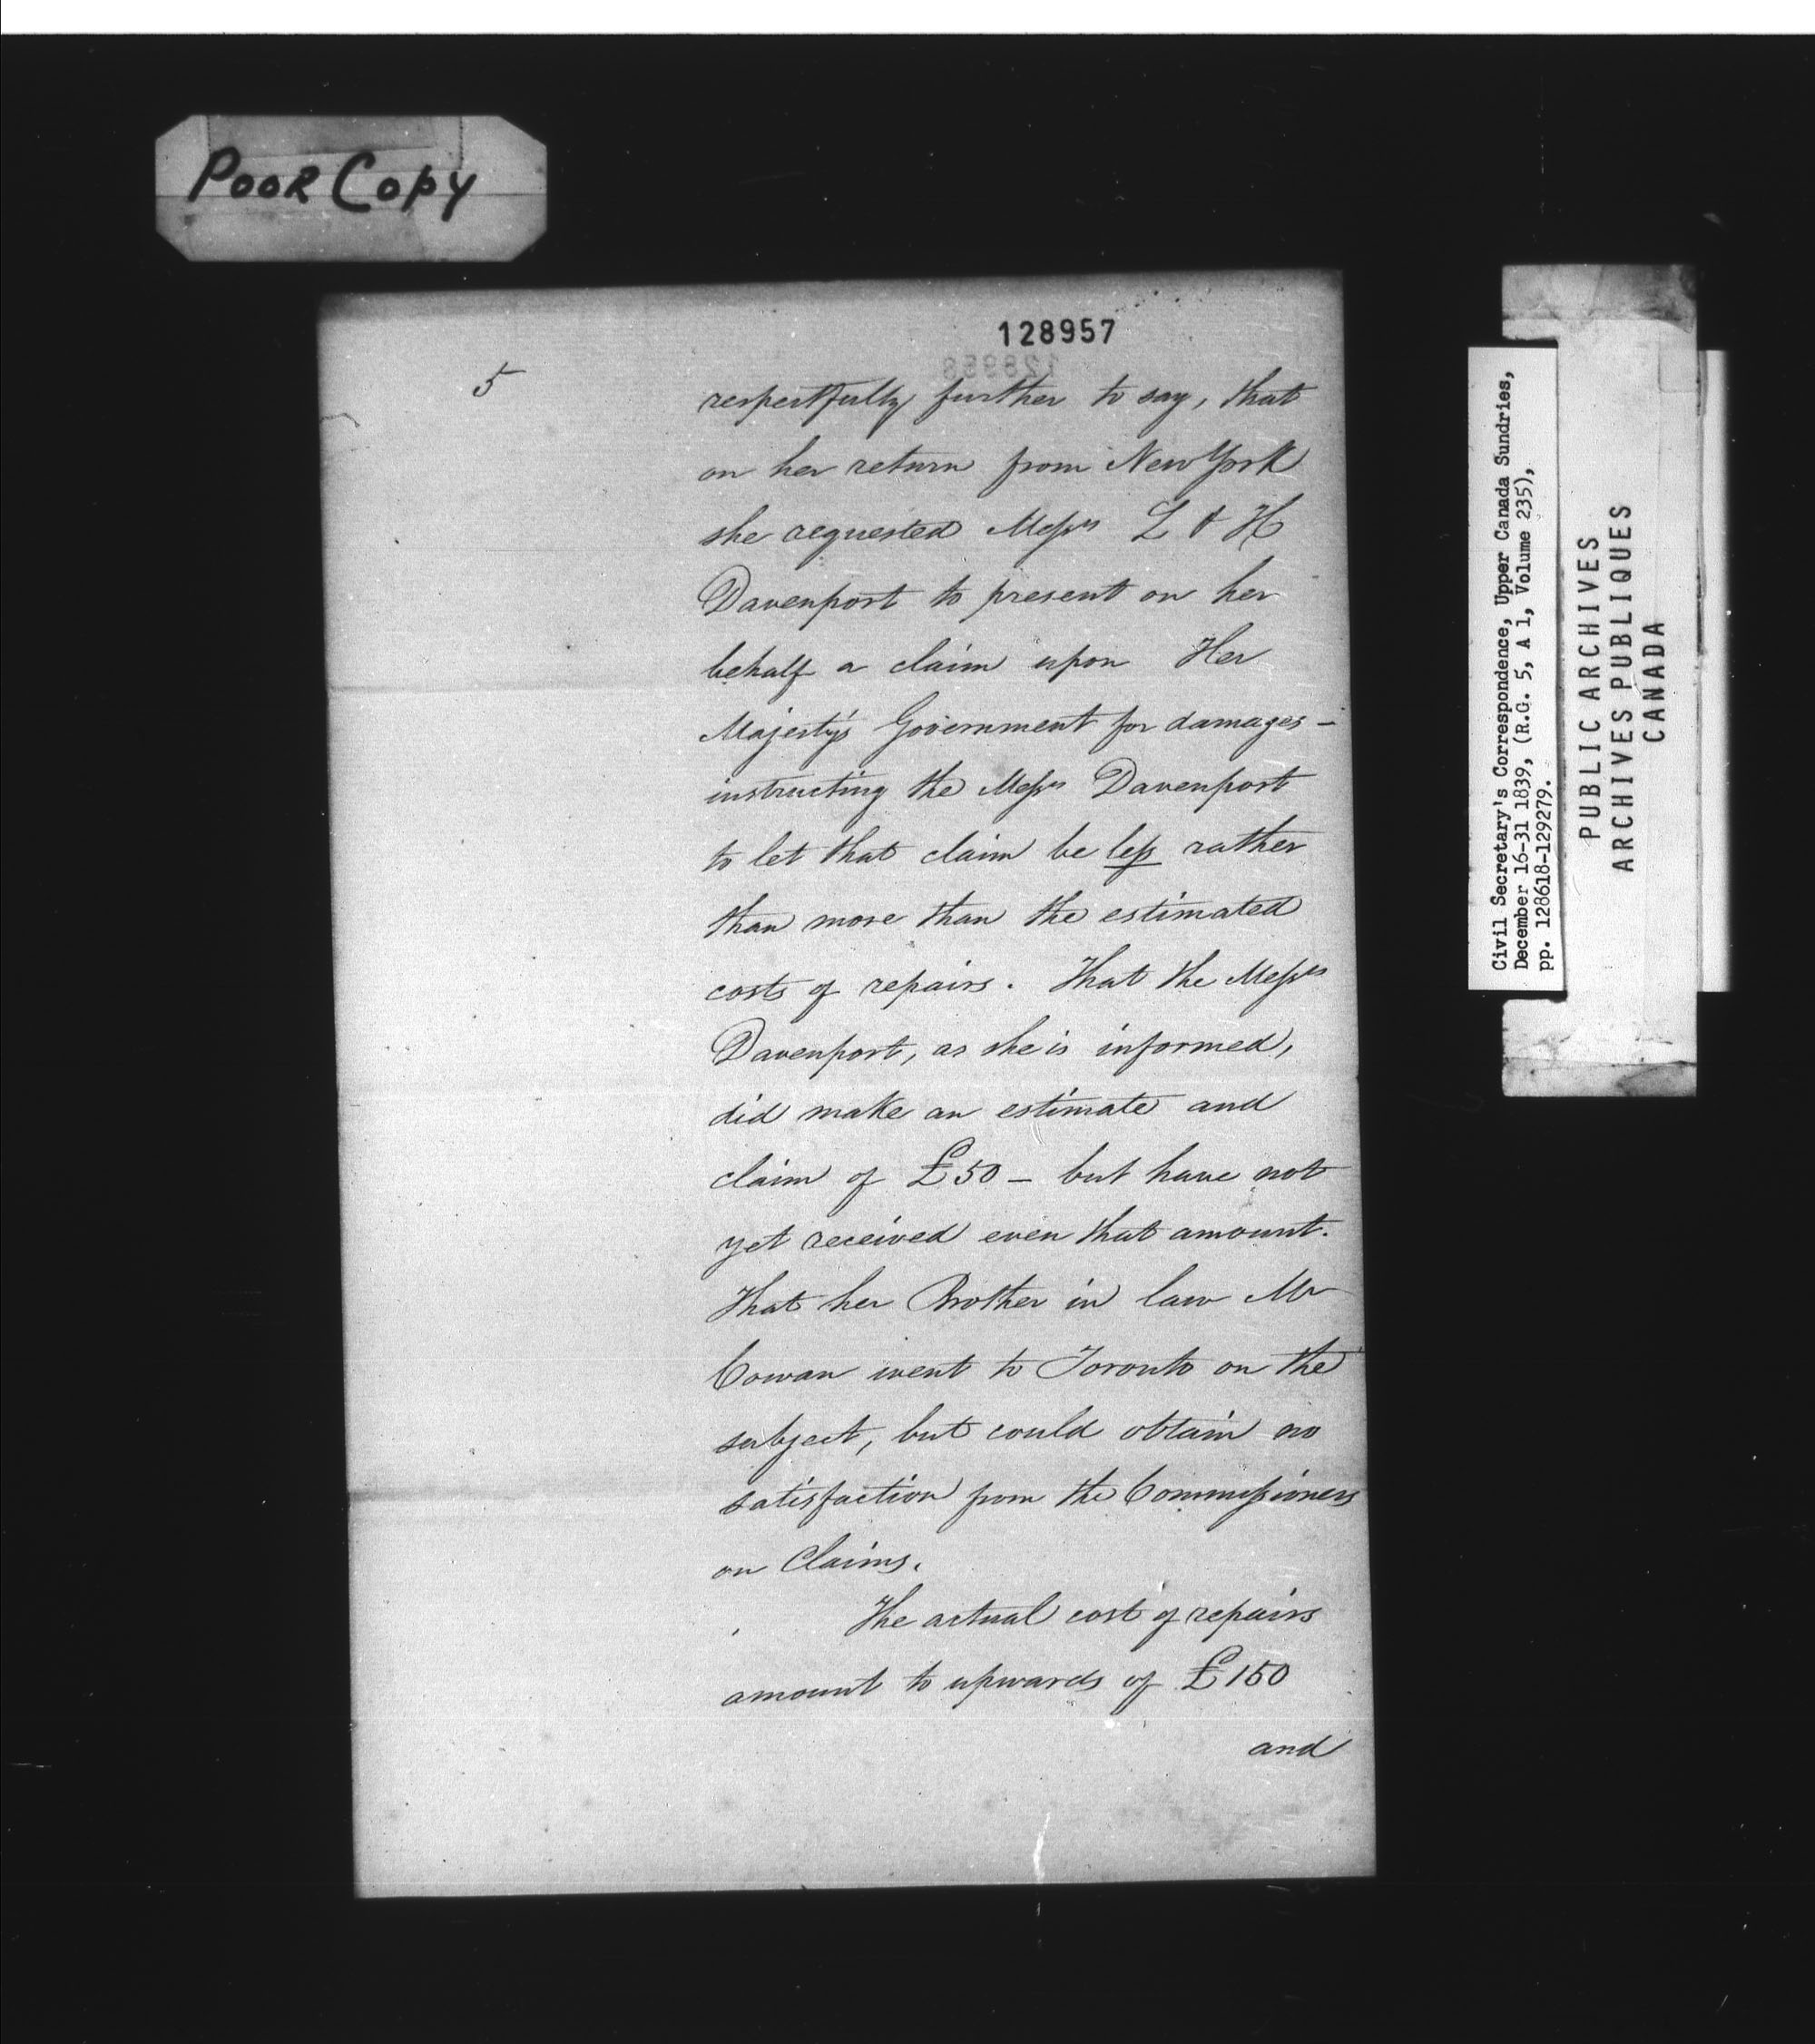 Poor Copy
128957
5
respectfully further to say, that
on her return from New York
she requested Messrs L & H
Davenport to present on her
behalf a claim upon Her
Majesty's Government for damages –
instructing the Messrs Davenport
to let that claim be less rather
than more than the estimated
costs of repairs. That the Messrs
Davenport, as she is informed,
did make an estimate and
claim of £50 – but have not
yet received even that amount.
That her Brother in law Mr
Cowan went to Toronto on the
subject, but could obtain no
satisfaction from the Commissioners
on Claims.
The actual cost of repairs
amount to upwards of £150
and
Civil Secretary's Correspondence, Upper Canada Sundries,
December 16-31 1839, (R.G. 5, A 1, Volume 235),
pp. 128618-129279.
PUBLIC ARCHIVES
ARCHIVES PUBLIQUES
CANADA